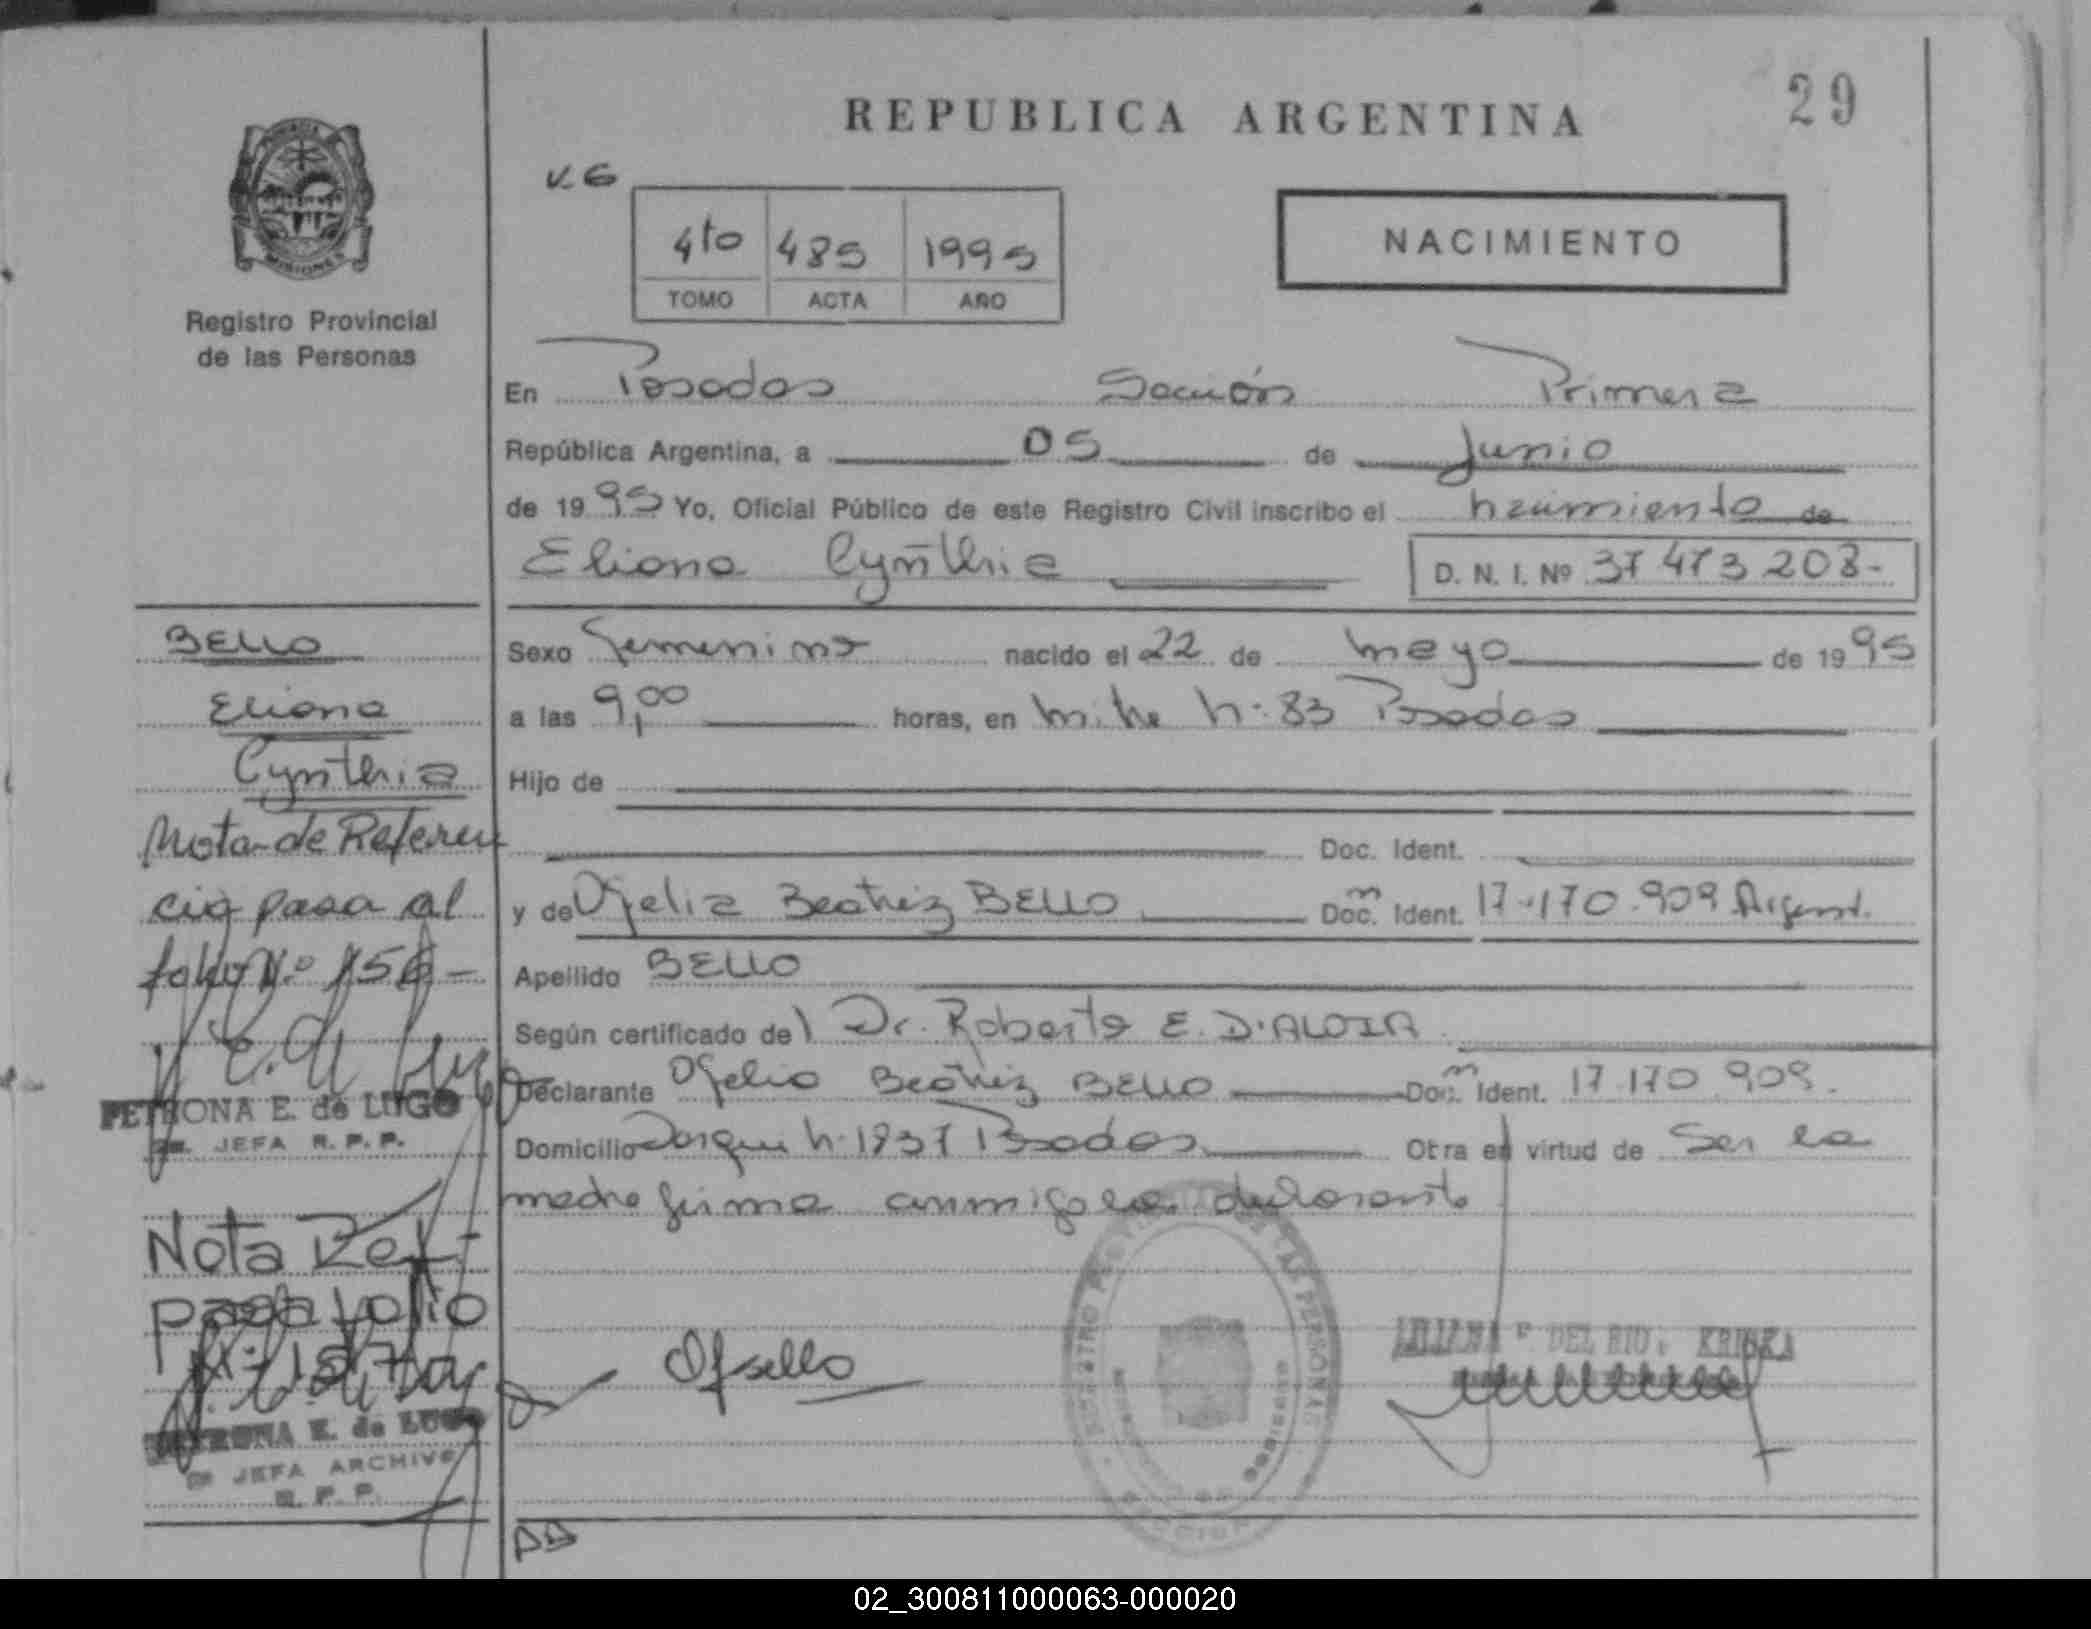 REPUBLICA ARGENTINA
29
4to 485 1995
TOMO ACTA AÑO
NACIMIENTO
MISIONES
Registro Provincial
de las Personas
En Posadas Sección Primera
República Argentina, a 05 de Junio
de 1995 Yo, Oficial Público de este Registro Civil inscribo el nacimiento de
Eliana Cynthia
D. N. I. Nº 37 473 208-
BELLO
Eliana
Cynthia
Sexo Femenino nacido el 22 de mayo de 1995
a las 9,00 horas, en Posadas
Hijo de
Doc. Ident.
y de Ofelia Beatriz BELLO Doc. Ident. 17.170.909 Argent.
Apellido BELLO
Según certificado del Dr. Roberto E. D'ALOIA
Declarante Ofelia Beatriz BELLO Doc. Ident. 17 170 909.
Domicilio 1937 Posadas Otra en virtud de Ser la
madre firma conmigo la declarante
Nota de Referen
cia pasa al
folio Nº
PETRONA E. de LUGO
JEFA R. P. P.
Nota Ref-
pasa folio
PETRONA E. de LUGO
JEFA ARCHIVO
R. P. P.
OfBello
DEL RIO
02_300811000063-000020